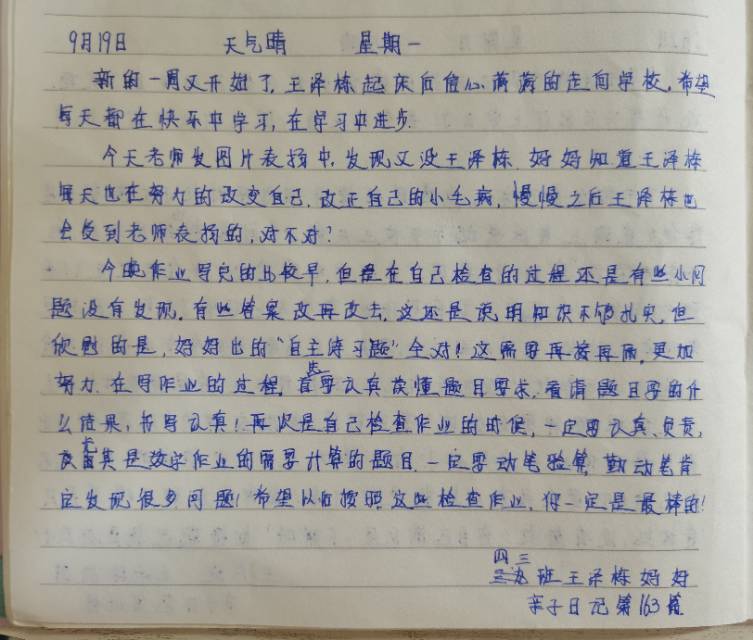 9月19日 天气晴 星期一
新的一周又开始了,王泽栋起床后信心满满的走向学校,希望
每天都在快乐中学习,在学习中进步.
今天老师发图片表扬中,发现又没王泽栋.妈妈知道王泽栋
每天也在努力的改变自己,改正自己的小毛病,慢慢之后王泽栋也
会受到老师表扬的,对不对?
今晚作业写完的比较早,但是在自己检查的过程还是有些小问
题没有发现,有些答案改再改去,这还是说明知识不够扎实,但
欣慰的是,妈妈出的“自主练习题”全对!这需要再接再厉,更加
努力.在写作业的过程,首先要认真读懂题目要求,看清题目要的什
么结果,书写认真!再次是自己检查作业的时候,一定要认真、负责,
尤其是数学作业的需要计算的题目,一定要动笔验算,勤动笔肯
定发现很多问题!希望以后按照这些检查作业,你一定是最棒的!
四三班王泽栋妈妈
亲子日记第163篇